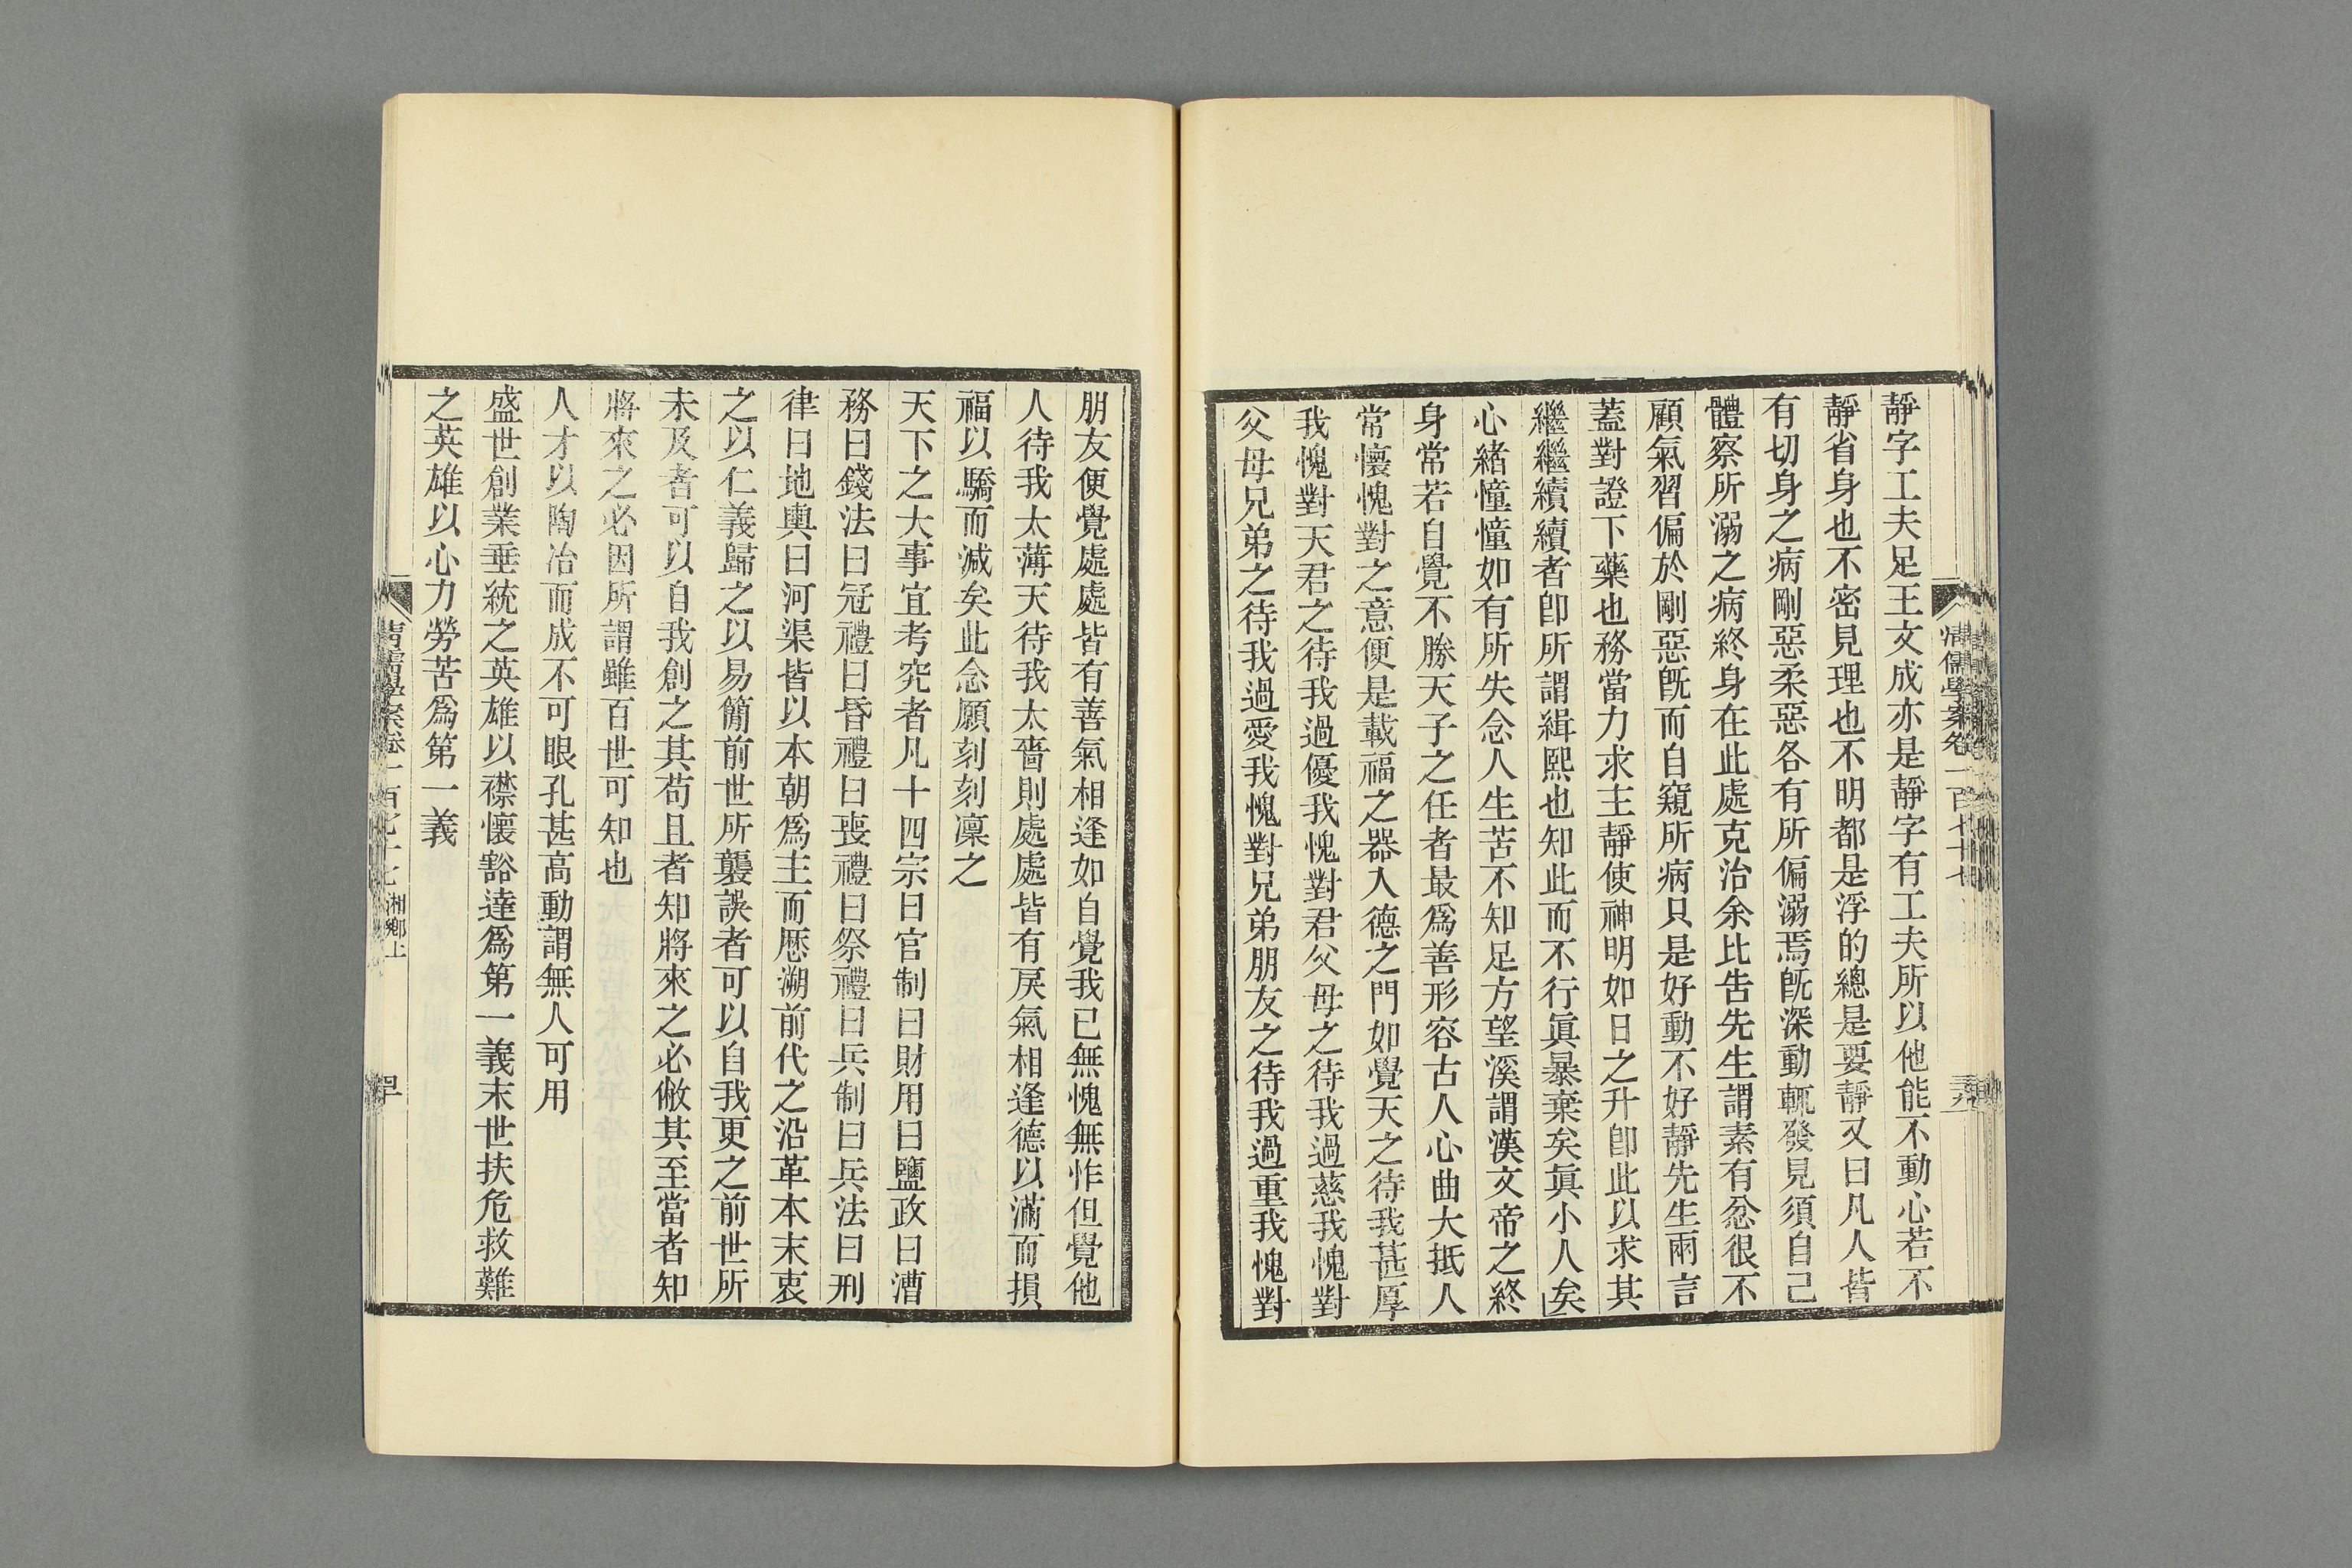 清儒學案卷一百七十七
靜字工夫足王文成亦是靜字有工夫所以他能不動心若不
靜省身也不密見理也不明都是浮的總是要靜又曰凡人皆
有切身之病剛惡柔惡各有所偏溺焉旣深動輒發見須自己
體察所溺之病終身在此處克治余比告先生謂素有忿很不
顧氣習偏於剛惡旣而自窺所病只是好動不好靜先生兩言
蓋對證下藥也務當力求主靜使神明如日之升卽此以求其
繼繼續續者卽所謂緝熙也知此而不行眞暴棄矣眞小人矣
心緒憧憧如有所失念人生苦不知足方望溪謂漢文帝之終
身常若自覺不勝天子之任者最爲善形容古人心曲大抵人
常懷愧對之意便是載福之器入德之門如覺天之待我甚厚
我愧對天君之待我過優我愧對君父母之待我過慈我愧對
父母兄弟之待我過愛我愧對兄弟朋友之待我過重我愧對
朋友便覺處處皆有善氣相逢如自覺我已無愧無怍但覺他
人待我太薄天待我太嗇則處處皆有戾氣相逢德以滿而損
福以驕而減矣此念願刻刻凜之
天下之大事宜考究者凡十四宗曰官制曰財用曰鹽政曰漕
務曰錢法曰冠禮曰昏禮曰喪禮曰祭禮曰兵制曰兵法曰刑
律曰地輿曰河渠皆以本朝爲主而厯溯前代之沿革本末衷
之以仁義歸之以易簡前世所襲誤者可以自我更之前世所
未及者可以自我創之其苟且者知將來之必敝其至當者知
將來之必因所謂雖百世可知也
人才以陶冶而成不可眼孔甚高動謂無人可用
盛世創業垂統之英雄以襟懷豁達爲第一義末世扶危救難
之英雄以心力勞苦爲第一義
清儒學案卷一百七十七 湘鄉上